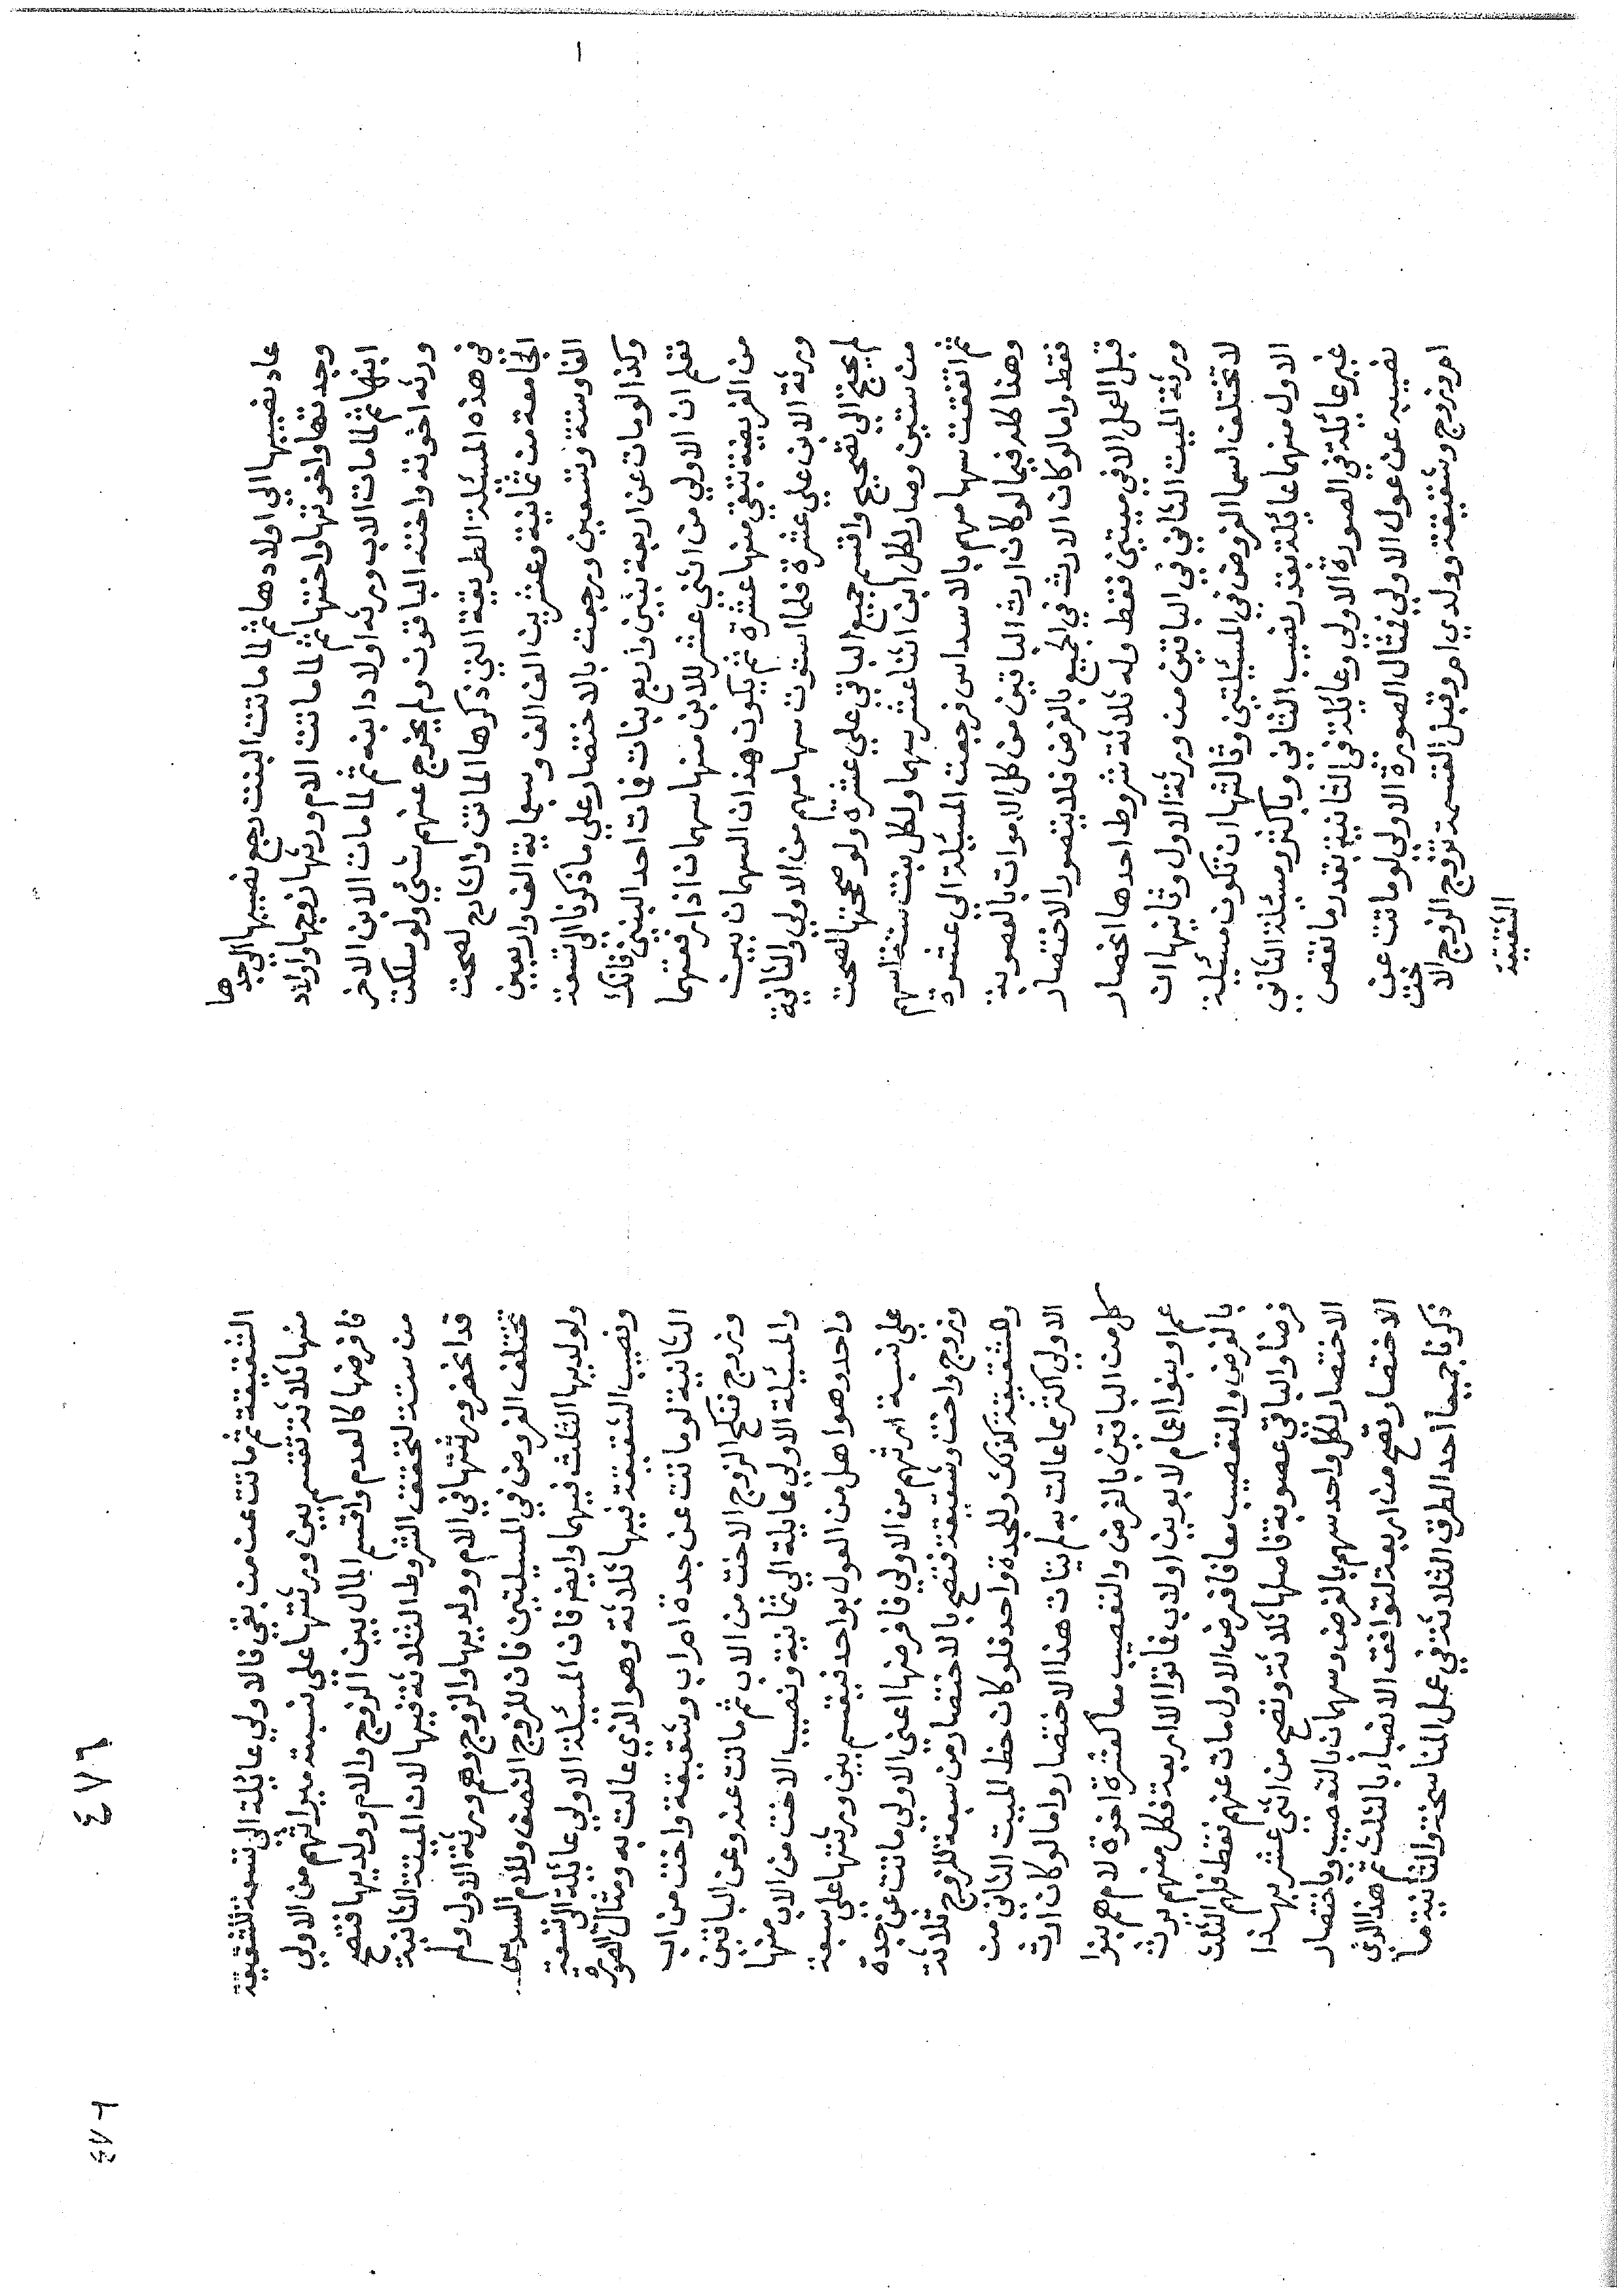 عاد نصيبها الي اولادها ثم لما ماتت البنت رجع نصيبها الي جدها
وجدتها واخوتها واختها ثم لما ماتت الام ورثها زوجها واولاد
ابنها ثم لما مات الاب ورثه اولاد ابنه ثم لما مات الابن الاخر
ورثه اخوته واخته الباقون ولم يخرج عنهم شئ ولو سلكت
في هذه المسئلة الطريقة التي ذكرها الماتن والشارح لصحت
الجامعة من ثمانية وعشرين الف الف وسبعماية الف واربعين
الفا وستة وتسعين ورجعت بالاختصار علي ما ذكرنا الي تسعة
وكذا لو مات عن اربعة بنين واربع بنات فمات احد البنين فانك
تعلم ان الاولي من اثني عشر للابن منها سهمان اذا رفعتهما
من الفريضة تبقي منها عشرة ثم يكون هذان السهمان بين
ورثة الابن علي عشرة فلما استوت سهامهم من الاولي والثانية
لم يحتج الي تصحيح واقسم جميع الباقي علي عشرة ولو صححتها لصحت
من ستين وصار لكل ابن اثنا عشر سهما ولكل بنت ستة اسهم
ثم اتفقت سهامهم بالاسداس فرجعت المسئلة الي عشرة
وهذا كله فيما لو كان ارث الباقين من كل الاموات بالعصوبة
فقط واما لو كان الارث في الجميع بالفرض فلا يتصور الاختصار
قبل العمل الا في ميتين فقط وله ثلاثة شروط احدها انحصار
ورثة الميت الثاني في الباقين من ورثة الاول وثانيها ان
لا تختلف اسما الفروض في المسئلتين وثالثها ان تكون مسئلة
الاول منهما عائلة بقدر نصيب الثاني وباكثر ومسئلة الثاني
غير عائلة في الصورة الاولي وعائلة في الثانية بقدر ما نقص
نصيبه عن عول الاولي فمثال الصورة الاولي لو ماتت عن
ام وزوج وشقيقة وولدي ام وقبل القسمة تزوج الزوج الاخت
الشقيقة
الشقيقة ثم ماتت عن من بقي فالاولي عائلة الي تسعة للشقيقة
منها ثلاثة تقسم بين ورثتها علي نسبة ميراثهم من الاولي
فافرضها كالعدم واقسم المال بين الزوج والام وولديها فتصح
من ستة لتحقق الشروط الثلاثة فيها لان الميتة الثانية
قد انحصر ورثتها في الام وولديها والزوج وهم ورثة الاول ولم
تختلف الفروض في المسئلتين فان للزوج النصف وللام السدس
ولولديها الثلث فيهما وايضا فان المسئلة الاولي عائلة الي تسعة
ونصيب الشقيقة فيها ثلاثة وهو الذي عالت به ومثال الصورة
الثانية لو ماتت عن جدة ام اب وشقيقة واخت من اب
وزوج فنكح الزوج الاخت من الاب ثم ماتت عنه وعن الباقين
والمسئلة الاولي عايلة الي ثمانية ونصيب الاخت من الاب منها
واحد وهو اقل من العول بواحد فيقسم بين ورثتها علي سبعة
علي نسبة ارثهم من الاولي فافرضها اعني الاولي ماتت عن جدة
وزوج واخت وشقيقة فتصح بالاختصار من سبعة للزوج ثلاثة
وللشقيقة كذلك وللجدة واحد فلو كان حظ الميت الثاني من
الاولي اكثر مما عالت به لم يتات هذا الاختصار واما لو كان ارث
كل من الباقين بالفرض والتعصيب معا كعشرة اخوة لام هم بنوا
عم او بنوا اعمام لابوين او لاب فماتوا الا اربعة فكل منهم يرث
بالفرض والتعصيب معا فافرض الاول مات عنهم فقط فلهم الثلث
فرضا والباقي عصوبة فاصلها ثلاثة وتصح من اثني عشر بهذا
الاختصار لكل واحد سهم بالفرض وسهمان بالتعصيب وباختصار
الاختصار تصح من اربعة لتوافق الانصباء بالثلث ثم هذا الذي
ذكرناه جميعا احد الطرق الثلاثة في عمل المناسخة والثانية ما
٤٧٦
٤٧٦